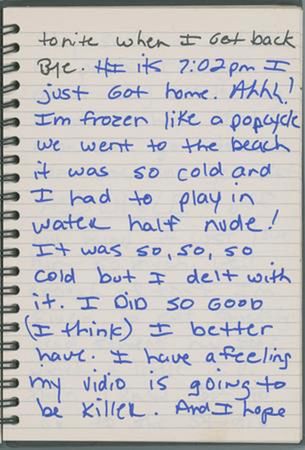 tonite when I Get back
Bye. HI its 7:02pm I
just Got home. Ahhh!
I'm frozen like a popcycle
we went to the beach
it was so cold and
I had to play in
water half nude!
It was so, so, so
cold but I delt with
it. I DiD so Good
(I think) I better
have. I have a feeling
my vidio is going to
be killer. And I hope